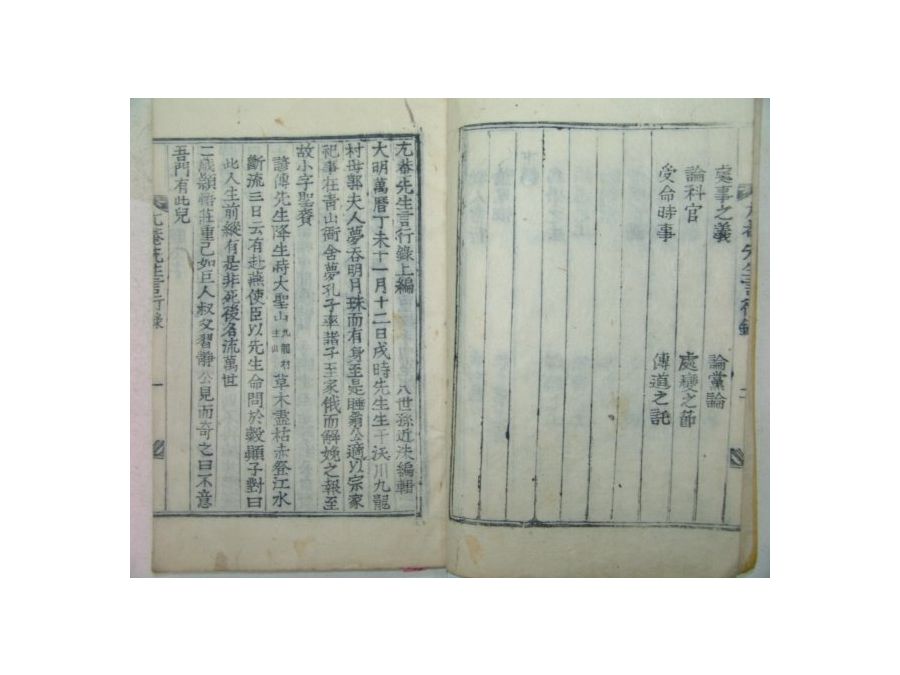 處事之義 論黨論
論科官 處變之節
受命時事 傳道之託
尤菴先生言行錄上編
八世孫近洙編輯
大明萬曆丁未十一月十二日戌時先生生于沃川九龍
村母郭夫人夢吞明月珠而有身至是睡翁公適以宗家
祀事在靑山衙舍夢孔子率諸子至家俄而解娩之報至
故小字聖賚
諺傳先生降生時大聖山九龍村主山草木盡枯赤登江水
斷流三日云有赴燕使臣以先生命問於數顯子對曰
此人生前縱有是非死後名流萬世
二歲頭角莊重已如巨人叔父習靜公見而奇之曰不意
吾門有此兒
尤菴先生言行錄
一